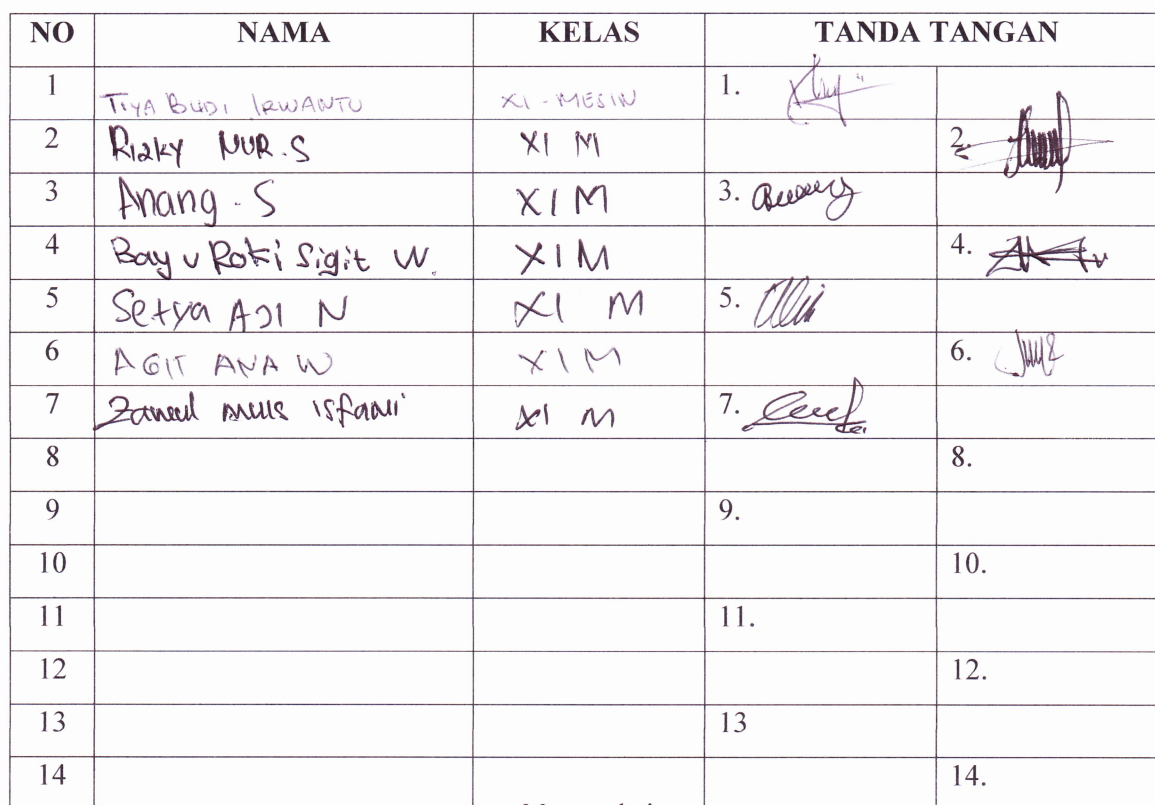 NO NAMA KELAS TANDA TANGAN
1 TIYA BUDI IRWANTO XI - MESIN 1.
2 Rizky NUR. S XI M 2.
3 Anang - S XI M 3. Anang
4 Bayu Roki Sigit W. XI M 4.
5 Setya AJI N XI M 5.
6 AGIT ANA W XI M 6.
7 XI M 7.
8 8.
9 9.
10 10.
11 11.
12 12.
13 13
14 14.